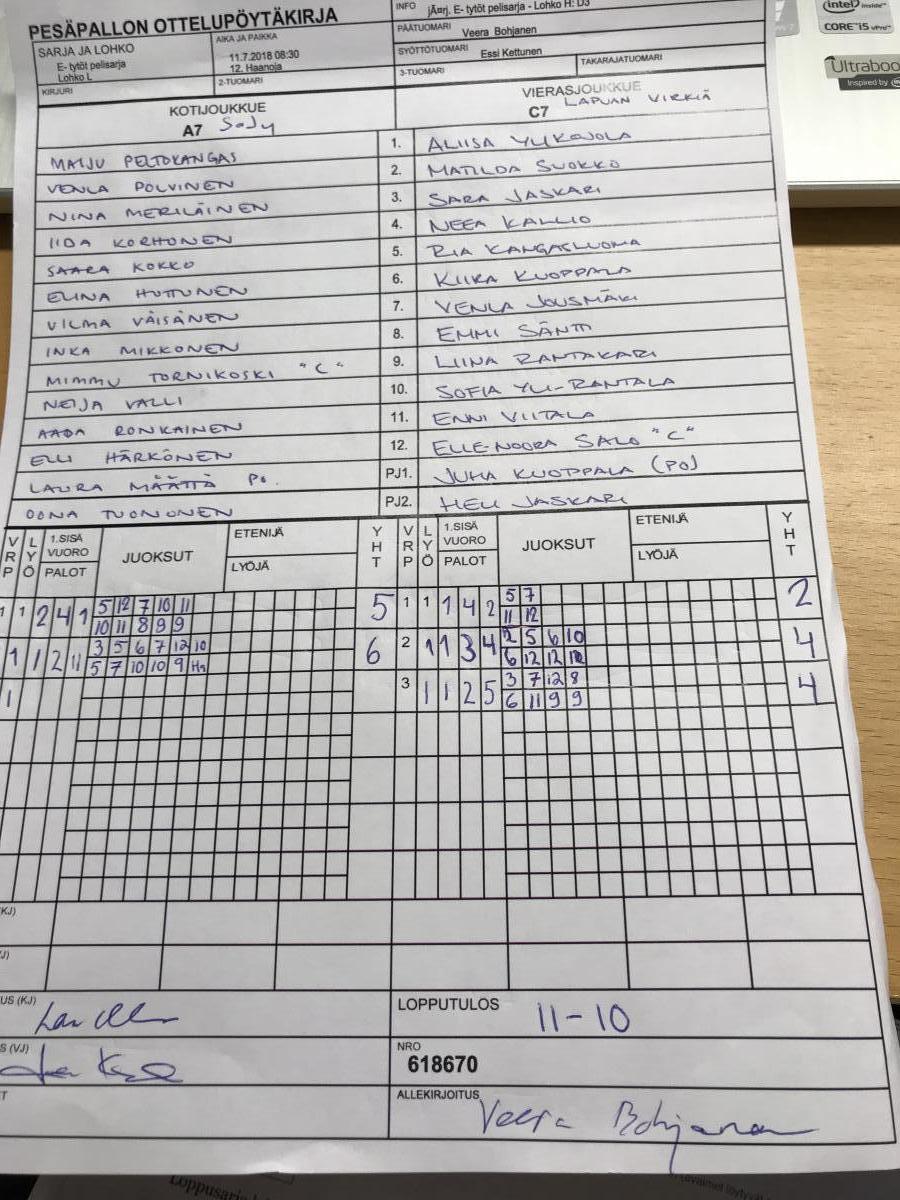 PESÄPALLON OTTELUPÖYTÄKIRJA
INFO jÃ¤rj. E- tytöt pelisarja - Lohko H: D3
SARJA JA LOHKO
E- tytöt pelisarja
Lohko L
AIKA JA PAIKKA
11.7.2018 08:30
12. Haanoja
PÄÄTUOMARI Veera Bohjanen
SYÖTTÖTUOMARI Essi Kettunen
KIRJURI
2-TUOMARI
3-TUOMARI
TAKARAJATUOMARI
KOTIJOUKKUE
A7 SoJy
VIERASJOUKKUE
C7 LAPUAN VIRKIÄ
MAIJU PELTOKANGAS 1. ALIISA YLIKOJOLA
VENLA POLVINEN 2. MATILDA SUOKKO
NINA MERILÄINEN 3. SARA JASKARI
IIDA KORHONEN 4. NEEA KALLIO
SAARA KOKKO 5. RIA KANGASLUOMA
ELINA HUTTUNEN 6. KIIRA KUOPPALA
VILMA VÄISÄNEN 7. VENLA JOUSMÄKI
INKA MIKKONEN 8. EMMI SÄNTTI
MIMMU TORNIKOSKI "C" 9. LIINA RANTAKARI
NEIJA VALLI 10. SOFIA YLI-RANTALA
AADA RONKAINEN 11. ENNI VIITALA
ELLI HÄRKÖNEN 12. ELLE-NOORA SALO "C"
LAURA MÄÄTTÄ PO. PJ1. JUHA KUOPPALA (PO)
OONA TUONONEN PJ2. HELI JASKARI
VRP LYÖ 1.SISÄ VUORO PALOT JUOKSUT ETENIJÄ LYÖJÄ YHT VRP LYÖ 1.SISÄ VUORO PALOT JUOKSUT ETENIJÄ LYÖJÄ YHT
1 1 2 4 1 5 12 7 10 11 5 1 1 1 4 2 5 7 2
10 11 8 9 9 11 12
1 1 2 11 3 5 6 7 12 10 6 2 1 1 3 4 2 5 6 10 4
5 7 10 10 9 Hn 6 12 12 12
1 3 1 1 2 5 3 7 12 8 4
6 11 9 9
KJ)
J)
US (KJ)
LOPPUTULOS 11-10
S (VJ)
NRO
618670
T
ALLEKIRJOITUS Veera Bohjanen
intel inside™
CORE™ i5 vPro™
Ultraboo
Inspired by